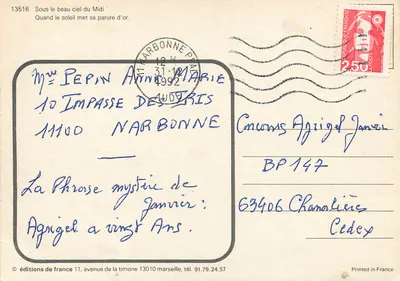 13516 Sous le beau ciel du Midi
Quand le soleil met sa parure d'or.
11 NARBONNE
12 H
31-12
1992
AUDE
2,50
Mme PEPIN ANNE MARIE
10 IMPASSE DES IRIS
11100 NARBONNE
La Phrase mystère de
Janvier :
Agrigel a vingt Ans.
Concours Agrigel Janvier
BP 147
63406 Chamalières
Cedex
© éditions de france 11, avenue de la timone 13010 marseille, tél. 91.79.24.57
Printed in France